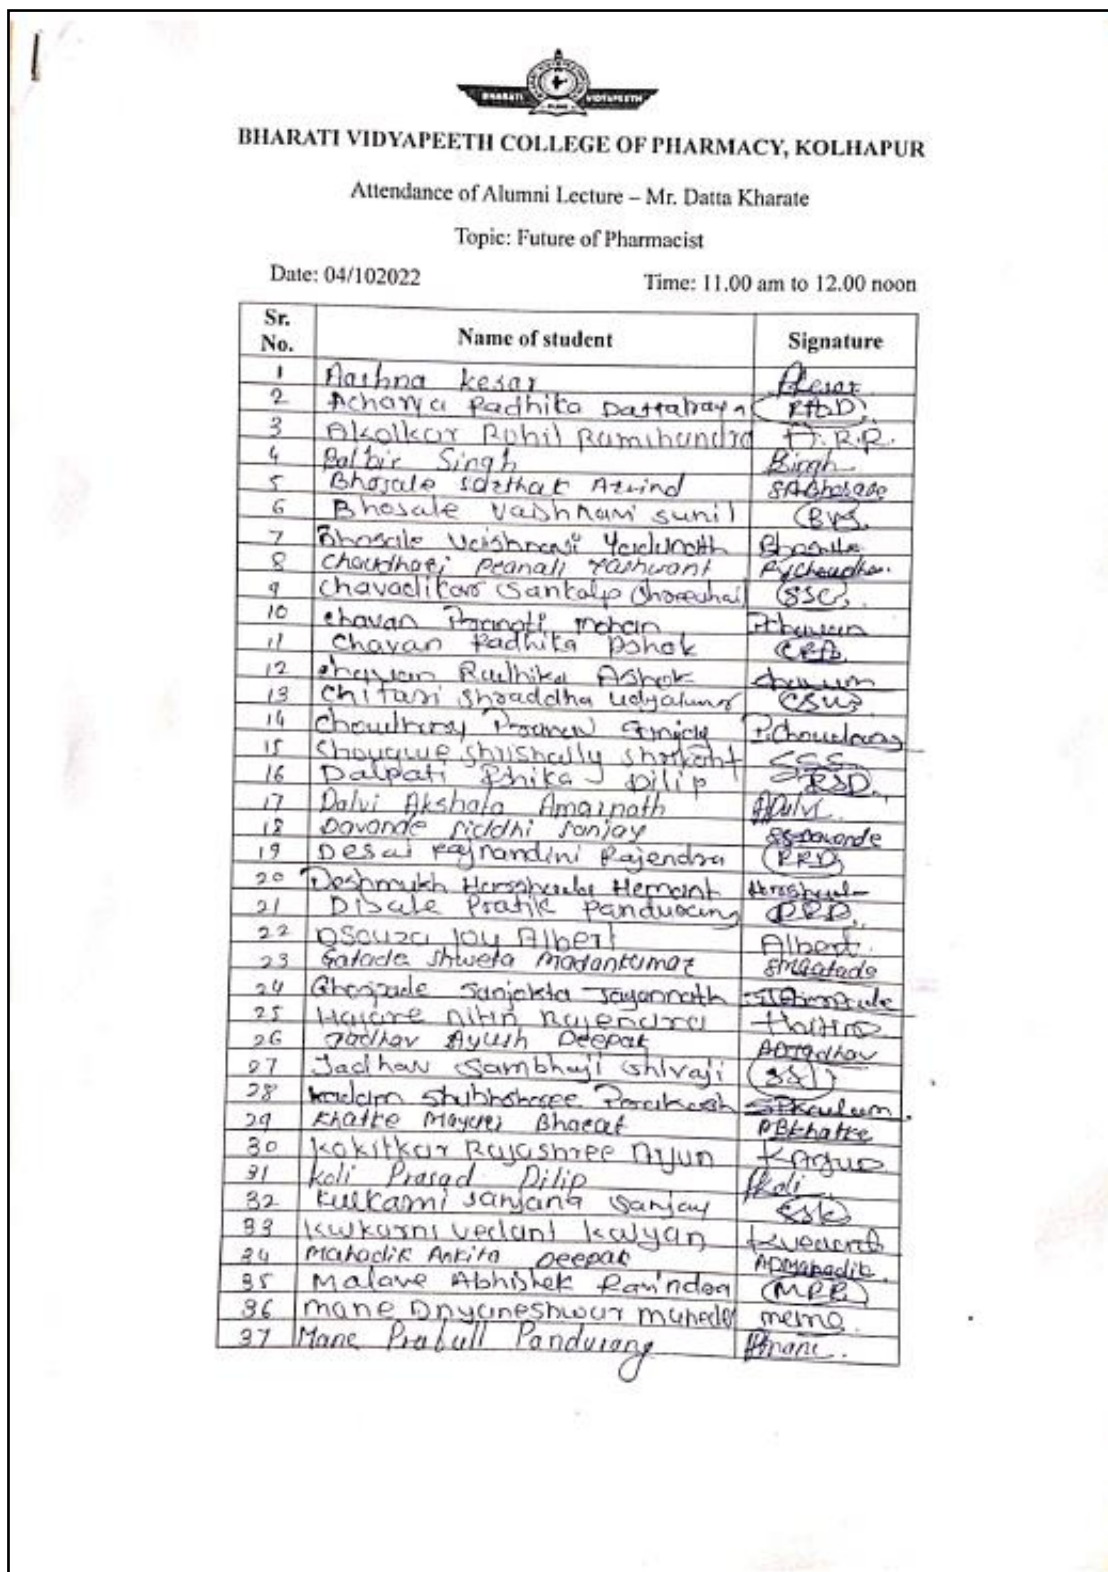 BHARATI VIDYAPEETH
PUNE
BHARATI VIDYAPEETH COLLEGE OF PHARMACY, KOLHAPUR
Attendance of Alumni Lecture – Mr. Datta Kharate
Topic: Future of Pharmacist
Date: 04/102022 Time: 11.00 am to 12.00 noon
Sr. No. Name of student Signature
1 Aashna kesar AKesar
2 Acharya Radhika Dattatraya RAD
3 Akolkar Rohil Ramchandra A.R.R.
4 Balbir Singh Bsingh
5 Bhosale Sarthak Arvind SABhosale
6 Bhosale Vaishnavi Sunil BVS
7 Bhosale Vaishnavi Yadunath Bhosale
8 Chaudhari Pranali Yashwant PYChaudhari
9 Chavaditar Sankalp SSC
10 Chavan Pranoti Mohan PChavan
11 Chavan Radhika Ashok CRA
12 Chavan Radhika Ashok Chavan
13 Chitari Shraddha CSU
14 Choudhary P.Choudhary
15 Chougule Shrikant S.C.S.
16 Dalpati Rhika Dilip RSD
17 Dalvi Akshata Amarnath ADalvi
18 Davande Siddhi Sanjay SSDavande
19 Desai Rajnandini Rajendra RRD
20 Deshmukh Harshada Hemant Harshada
21 Disale Pratik Pandurang DPP
22 DSouza Joy Albert Albert
23 Gatade Shweta Madankumar SMGatade
24 Ghorpade Sanjokta Jagannath
25 Hajare Nitin Rajendra
26 Jadhav Ayush Deepak ADJadhav
27 Jadhav Sambhaji Shivaji SSJ
28 Kadam Shubhshree Prakash SPKadam.
29 Khatke Mayuri Bharat MBKhatke
30 Kokitkar Rajashree Arjun KArjun
31 Koli Prasad Dilip PKoli
32 Kulkarni Sanjana Sanjay SSK
33 Kulkarni Vedant Kalyan KVedant
34 Mahadik Ankita Deepak ADMahadik.
35 Malave Abhishek Ravindra MAR
36 Mane Dnyaneshwar Mahadev
37 Mane Prafull Pandurang Pmane.